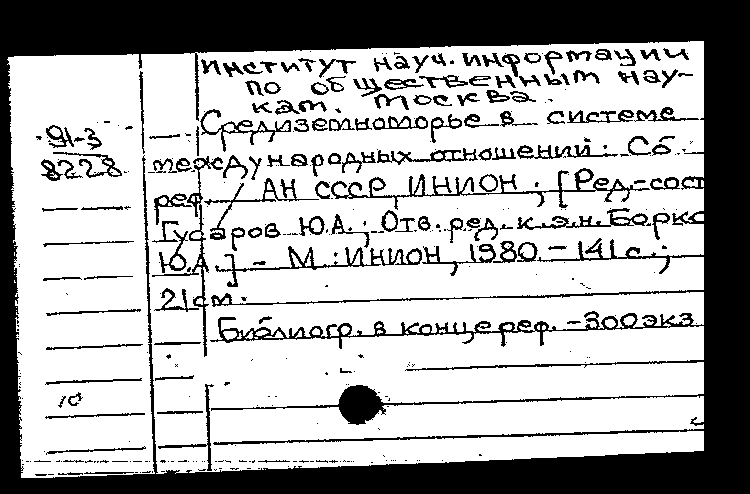 Институт науч. информации
по общественным нау-
кам. Москва.
91-3
8228
Средиземноморье в системе
международных отношений: Сб.
реф. / АН СССР, ИНИОН; [Ред.-сост
Гусаров Ю.А.; Отв. ред. к.э.н. Борко
Ю.А.] - М.: ИНИОН, 1980. - 141 с.;
21 см.
Библиогр. в конце реф. - 300 экз
10